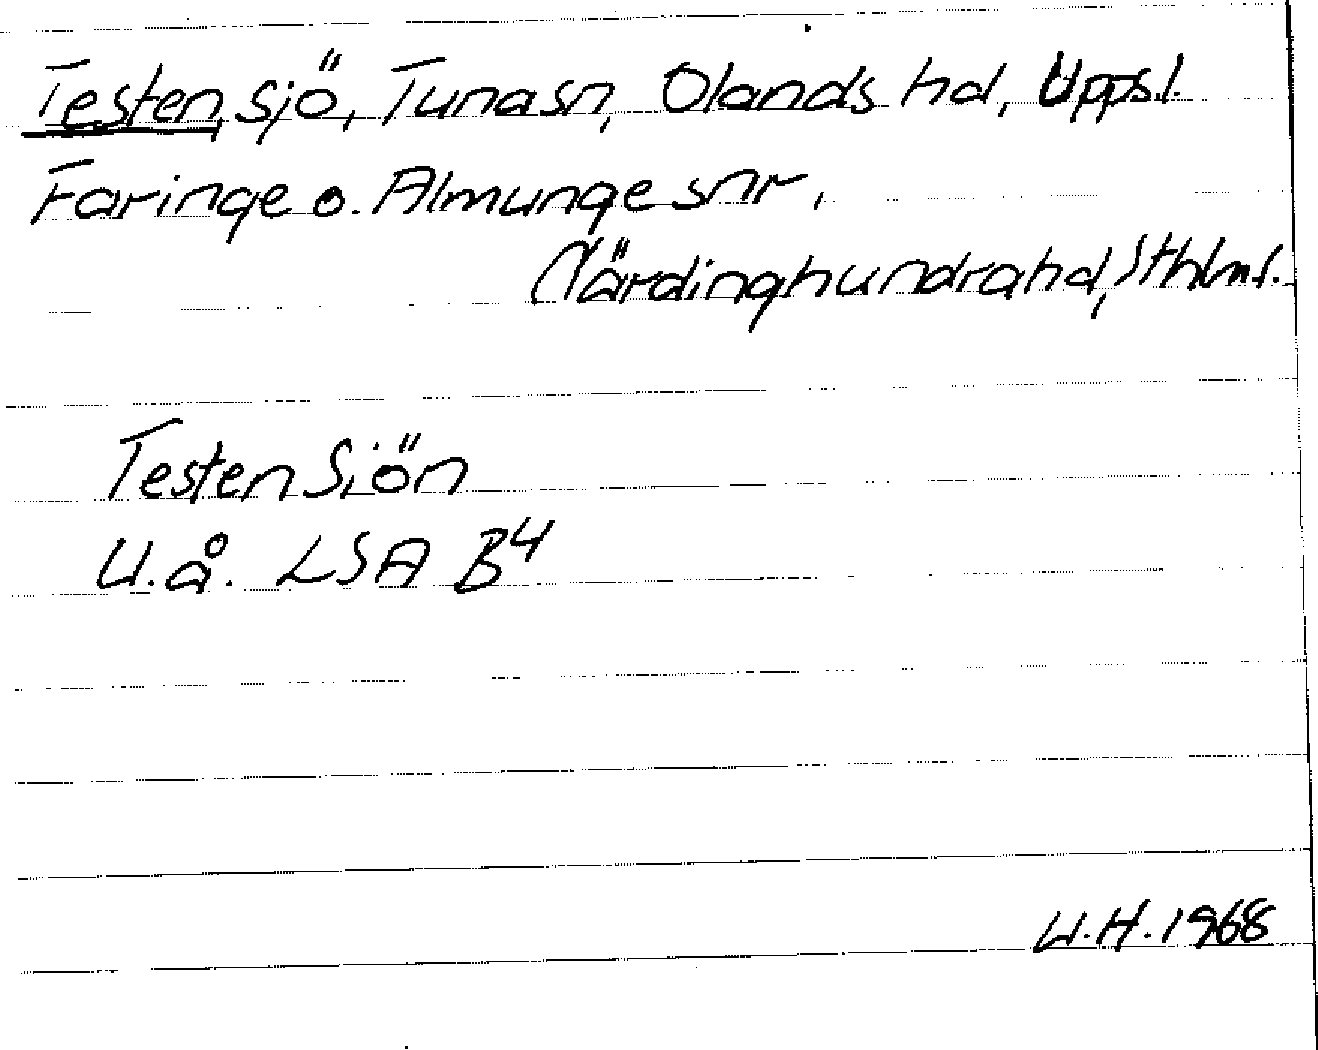 Testen, sjö, Tuna sn, Olands hd, Upps.l.
Faringe o. Almunge snr,
Närdinghundra hd, Sthlms l.
Testen Siön
U.å. LSA B4
U.H. 1968